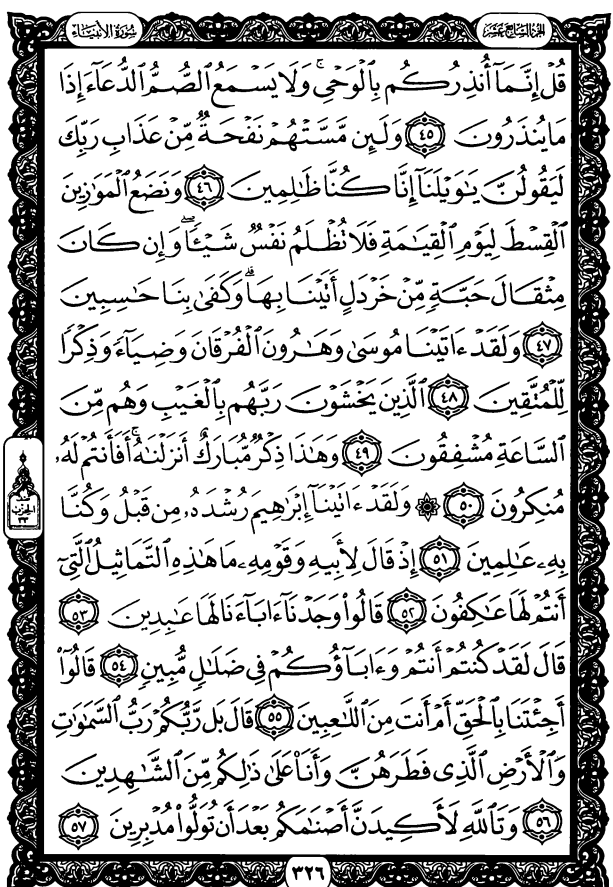 سُورَةُ الأَنبِيَاء
الجُزْءُ السَّابِعَ عَشَرَ
قُلْ إِنَّمَآ أُنذِرُكُم بِٱلْوَحْىِ ۚ وَلَا يَسْمَعُ ٱلصُّمُّ ٱلدُّعَآءَ إِذَا
مَا يُنذَرُونَ ٤٥ وَلَئِن مَّسَّتْهُمْ نَفْحَةٌ مِّنْ عَذَابِ رَبِّكَ
لَيَقُولُنَّ يَٰوَيْلَنَآ إِنَّا كُنَّا ظَٰلِمِينَ ٤٦ وَنَضَعُ ٱلْمَوَٰزِينَ
ٱلْقِسْطَ لِيَوْمِ ٱلْقِيَٰمَةِ فَلَا تُظْلَمُ نَفْسٌ شَيْـًٔا ۖ وَإِن كَانَ
مِثْقَالَ حَبَّةٍ مِّنْ خَرْدَلٍ أَتَيْنَا بِهَا ۗ وَكَفَىٰ بِنَا حَٰسِبِينَ
٤٧ وَلَقَدْ ءَاتَيْنَا مُوسَىٰ وَهَٰرُونَ ٱلْفُرْقَانَ وَضِيَآءً وَذِكْرًا
لِّلْمُتَّقِينَ ٤٨ ٱلَّذِينَ يَخْشَوْنَ رَبَّهُم بِٱلْغَيْبِ وَهُم مِّنَ
ٱلسَّاعَةِ مُشْفِقُونَ ٤٩ وَهَٰذَا ذِكْرٌ مُّبَارَكٌ أَنزَلْنَٰهُ ۚ أَفَأَنتُمْ لَهُۥ
مُنكِرُونَ ٥٠ ۞ وَلَقَدْ ءَاتَيْنَآ إِبْرَٰهِيمَ رُشْدَهُۥ مِن قَبْلُ وَكُنَّا
بِهِۦ عَٰلِمِينَ ٥١ إِذْ قَالَ لِأَبِيهِ وَقَوْمِهِۦ مَا هَٰذِهِ ٱلتَّمَاثِيلُ ٱلَّتِىٓ
أَنتُمْ لَهَا عَٰكِفُونَ ٥٢ قَالُوا۟ وَجَدْنَآ ءَابَآءَنَا لَهَا عَٰبِدِينَ ٥٣
قَالَ لَقَدْ كُنتُمْ أَنتُمْ وَءَابَآؤُكُمْ فِى ضَلَٰلٍ مُّبِينٍ ٥٤ قَالُوٓا۟
أَجِئْتَنَا بِٱلْحَقِّ أَمْ أَنتَ مِنَ ٱللَّٰعِبِينَ ٥٥ قَالَ بَل رَّبُّكُمْ رَبُّ ٱلسَّمَٰوَٰتِ
وَٱلْأَرْضِ ٱلَّذِى فَطَرَهُنَّ وَأَنَا۠ عَلَىٰ ذَٰلِكُم مِّنَ ٱلشَّٰهِدِينَ
٥٦ وَتَٱللَّهِ لَأَكِيدَنَّ أَصْنَٰمَكُم بَعْدَ أَن تُوَلُّوا۟ مُدْبِرِينَ ٥٧
الحزب
٣٣
٣٢٦